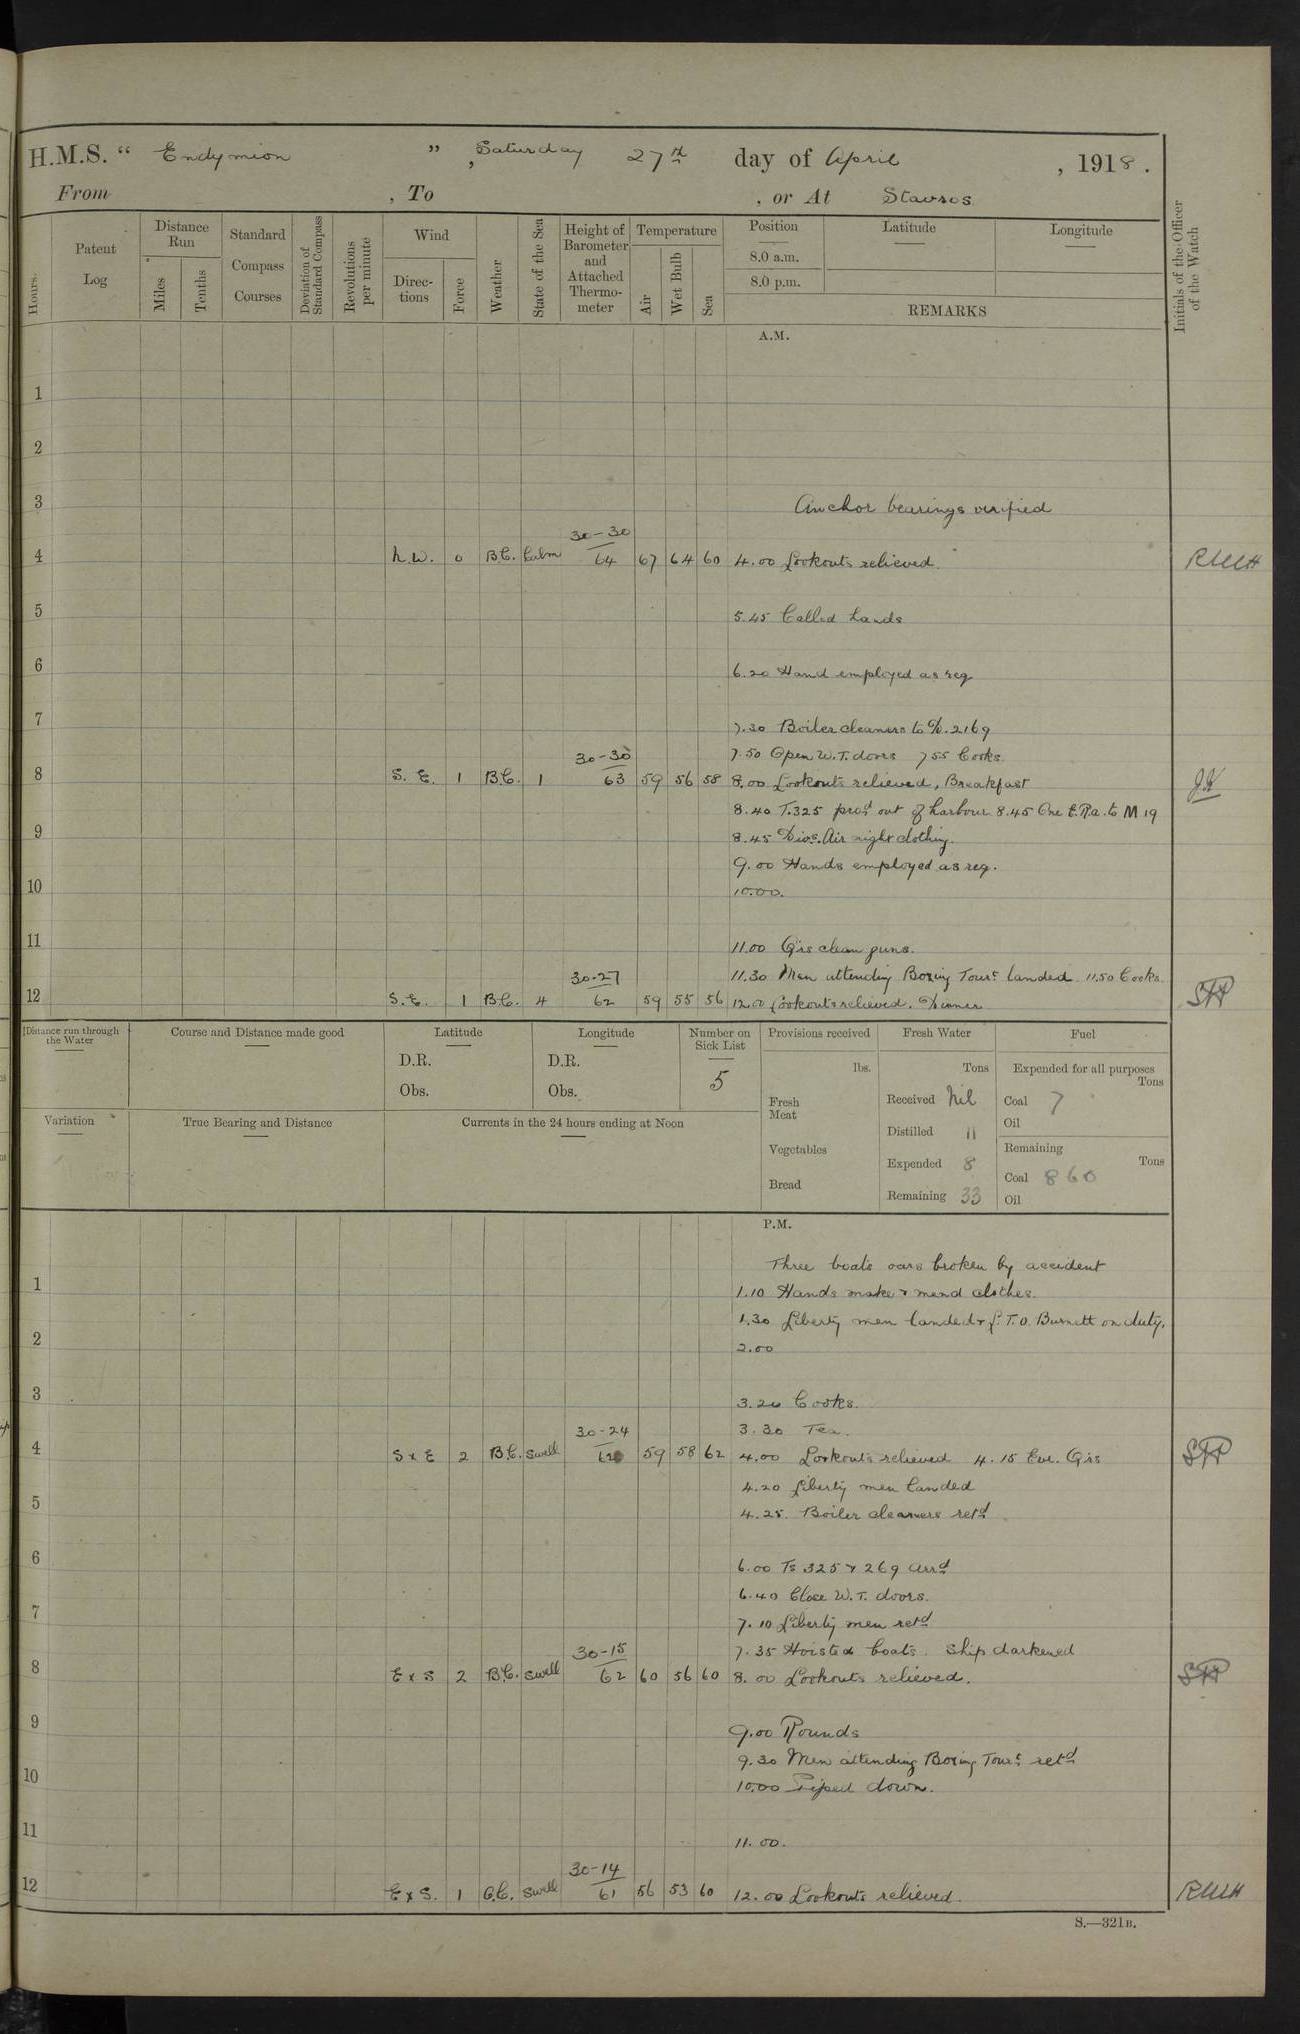 H.M.S. “ Endymion ” , Saturday 27th day of April , 1918 .
From , To , or At Stavros
Hours.
Patent Log
Distance Run
Miles
Tenths
Standard Compass Courses
Deviation of Standard Compass
Revolutions per minute
Wind
Direc-tions
Force
Weather
State of the Sea
Height of Barometer and Attached Thermo-meter
Temperature
Air
Wet Bulb
Sea
Position
8.0 a.m.
8.0 p.m.
Latitude
Longitude
REMARKS
Initials of the Officer of the Watch
A.M.
1
2
3 Anchor bearings verified
30-30
4 N.W. 0 B.C. Calm 64 67 64 60 4.00 Lookouts relieved. RWH
5 5.45 Called hands
6 6.20 Hand employed as reg
7 7.30 Boiler cleaners to T/B. 2169
30-30 7.50 Open W.T. doors 7 55 Cooks.
8 S. E. 1 B.C. 1 63 59 56 58 8.00 Lookouts relieved, Breakfast
8.40 T.325 procd out of harbour. 8.45 One E.R.a. to M 19
9 8.45 Divs. Air night clothing.
9.00 Hands employed as reg.
10 10.00.
11 11.00 Qrs clean guns.
30-27 11.30 Men attending Boxing Tourt landed 11.50 Cooks.
12 S.E. 1 B.C. 4 62 59 55 56 12.0 Lookouts relieved. Dinner
Distance run through the Water
Course and Distance made good
Latitude
D.R.
Obs.
Longitude
D.R.
Obs.
Number on Sick List
5
Provisions received
lbs.
Fresh Meat
Vegetables
Bread
Fresh Water
Tons
Received Nil
Distilled 11
Expended 8
Remaining 33
Fuel
Expended for all purposes
Tons
Coal 7
Oil
Remaining
Tons
Coal 860
Oil
Variation
True Bearing and Distance
Currents in the 24 hours ending at Noon
P.M.
Three boats oars broken by accident
1 1.10 Hands make & mend clothes.
1.30 Liberty men landed & L.T.O. Burnett on duty.
2 2.00
3 3.20 Cooks.
30-24 3.30 Tea.
4 S x E 2 B.C. Swell 62 59 58 62 4.00 Lookouts relieved 4.15 Eve. Qrs
4.20 Liberty men landed
5 4.25. Boiler cleaners retd
6 6.00 Ts 325 & 269 arrd
6.40 Close W.T. doors.
7 7.10 Liberty men retd
30-15 7.35 Hoisted boats. Ship darkened
8 E x S 2 B.C. Swell 62 60 56 60 8.00 Lookouts relieved.
9 9.00 Rounds
9.30 Men attending Boxing Tourt retd
10 10.00 Piped down.
11 11.00.
30-14
12 E x S. 1 B.C. Swell 61 56 53 60 12.00 Lookouts relieved. RWH
S.—321B.